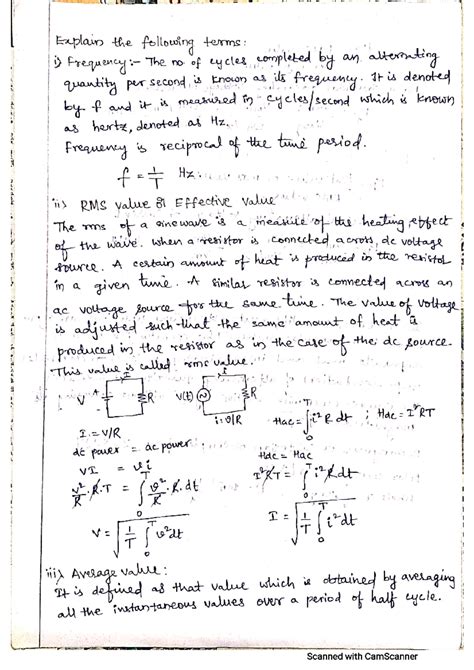 Explain the following terms:
i) Frequency:- The no of cycles completed by an alternating
quantity per second is known as its frequency. It is denoted
by f and it is measured in cycles/second which is known
as hertz, denoted as Hz.
Frequency is reciprocal of the time period.
f = 1/T Hz.
ii) RMS value or Effective value
The rms of a sinewave is a measure of the heating effect
of the wave. When a resistor is connected across dc voltage
source. A certain amount of heat is produced in the resistor
in a given time. A similar resistor is connected across an
ac voltage source for the same time. The value of voltage
is adjusted such that the same amount of heat is
produced in the resistor as in the case of the dc source.
This value is called rms value.
V R V(t) R
I = V/R
i = v/R
Hac = ∫₀ᵀ i² R dt ; Hdc = I²RT
dc power = ac power
Hdc = Hac
VI = vi
V²/R . R . T = ∫₀ᵀ v²/R . R . dt
I²RT = ∫₀ᵀ i² R dt
V = √(1/T ∫₀ᵀ v² dt)
I = √(1/T ∫₀ᵀ i² dt)
iii) Average value:
It is defined as that value which is obtained by averaging
all the instantaneous values over a period of half cycle.
Scanned with CamScanner